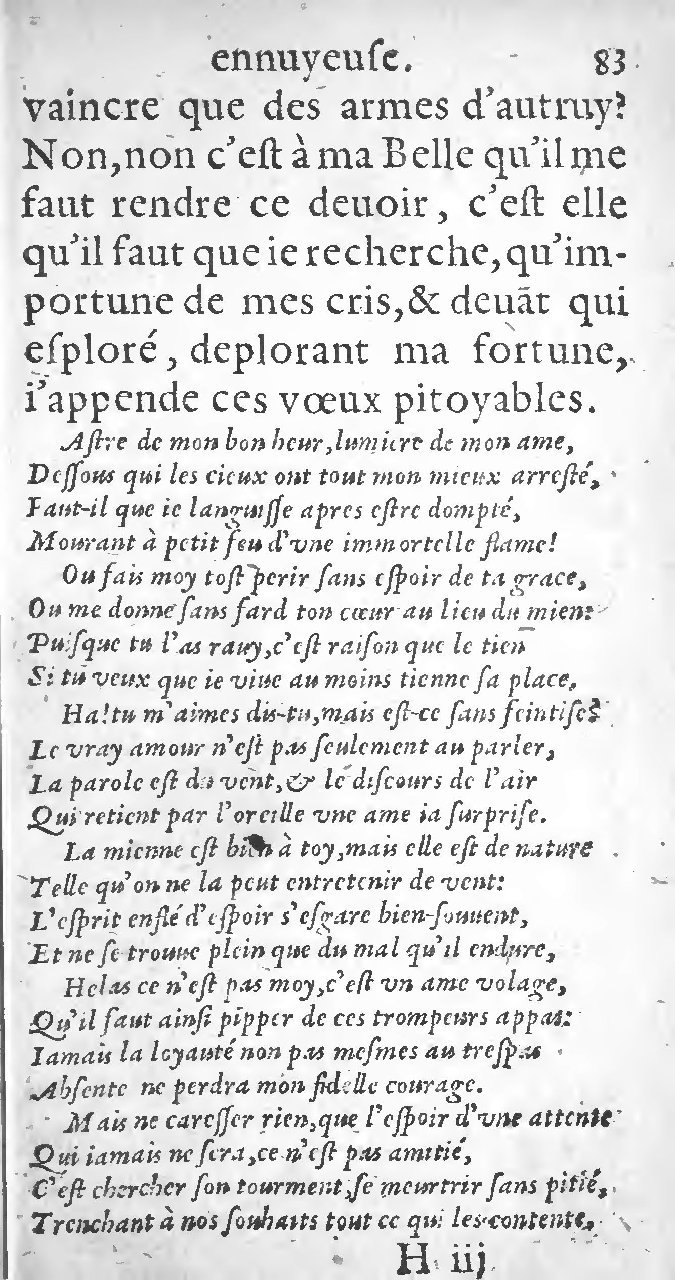 ennuyeuſe. 83
vaincre que des armes d'autruy?
Non, non c'eſt à ma Belle qu'il me
faut rendre ce deuoir, c'eſt elle
qu'il faut que ie recherche, qu'im-
portune de mes cris, & deuãt qui
eſploré, deplorant ma fortune,
i'appende ces vœux pitoyables.
Aſtre de mon bon heur, lumiere de mon ame,
Deſſous qui les cieux ont tout mon mieux arreſté,
Faut-il que ie languiſſe apres eſtre dompté,
Mourant à petit feu d'vne immortelle flame!
Ou fais moy toſt perir ſans eſpoir de ta grace,
Ou me donne ſans fard ton cœur au lieu du mien:
Puiſque tu l'as rauy, c'eſt raiſon que le tien
Si tu veux que ie viue au moins tienne ſa place,
Ha! tu m'aimes dis-tu, mais eſt-ce ſans feintiſe?
Le vray amour n'eſt pas ſeulement au parler,
La parole eſt du vent, & le diſcours de l'air
Qui retient par l'oreille vne ame ia ſurpriſe.
La mienne eſt bien à toy, mais elle eſt de nature
Telle qu'on ne la peut entretenir de vent:
L'eſprit enflé d'eſpoir s'eſgare bien-ſouuent,
Et ne ſe trouue plein que du mal qu'il endure,
Helas ce n'eſt pas moy, c'eſt vn ame volage,
Qu'il faut ainſi pipper de ces trompeurs appas:
Iamais la loyauté non pas meſmes au treſpas
Abſente ne perdra mon fidelle courage.
Mais ne careſſer rien, que l'eſpoir d'vne attente
Qui iamais ne ſera, ce n'eſt pas amitié,
C'eſt chercher ſon tourment, ſe meurtrir ſans pitié,
Trenchant à nos ſouhaits tout ce qui les contente,
H iij